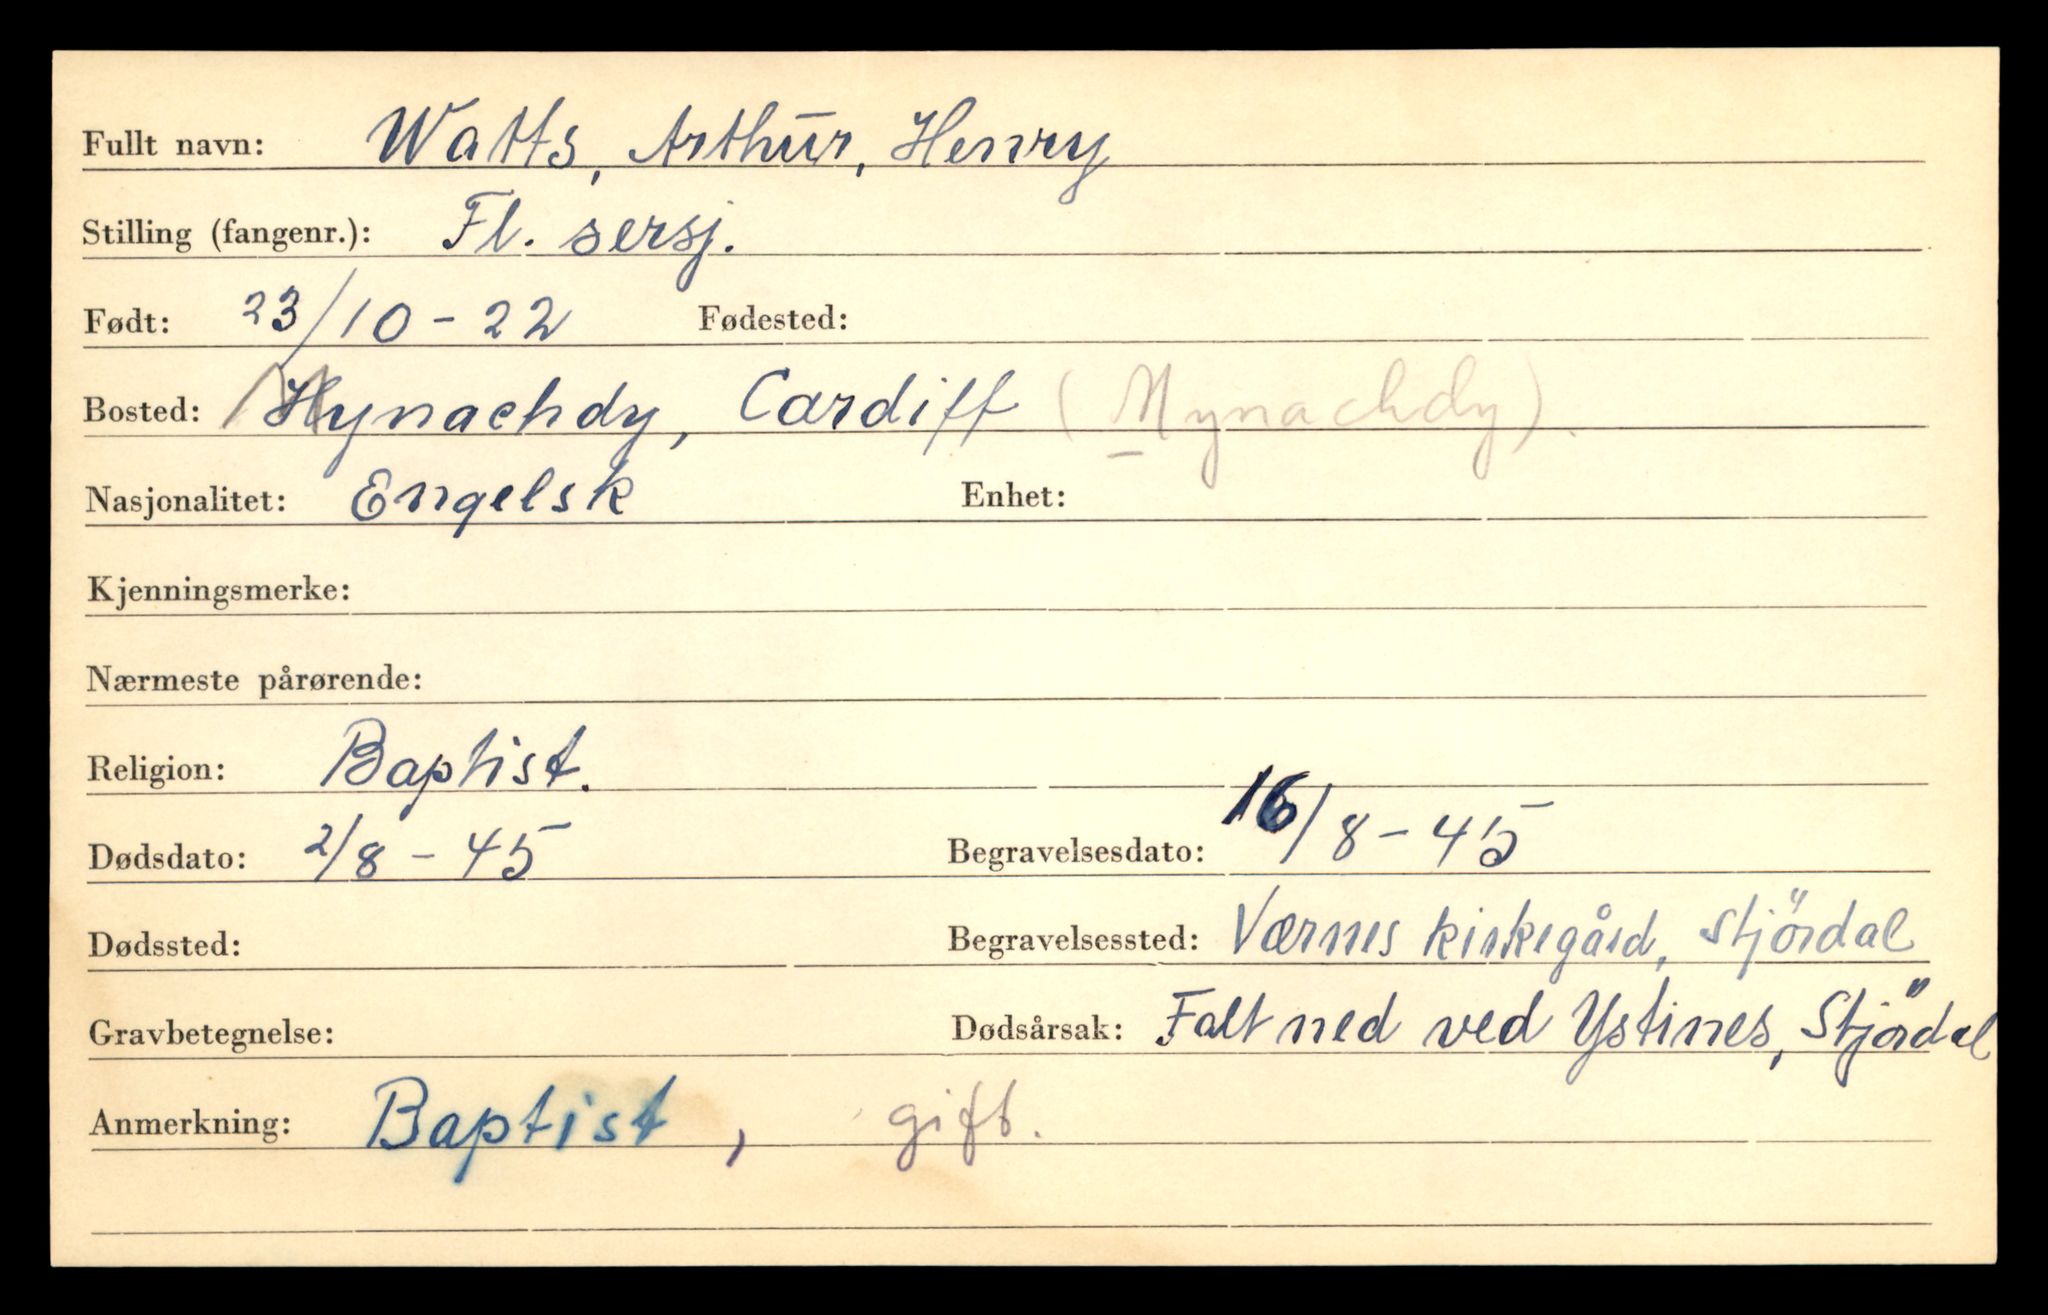 Fullt navn: Watts, Arthur, Henry
Stilling (fangenr.): Fl. sersj.
Født: 23/10-22 Fødested:
Bosted: Mynachdy, Cardiff (Mynachdy).
Nasjonalitet: Engelsk Enhet:
Kjenningsmerke:
Nærmeste pårørende:
Religion: Baptist.
Dødsdato: 2/8-45 Begravelsesdato: 16/8-45
Dødssted: Begravelsessted: Værnes kirkegård, Stjördal
Gravbetegnelse: Dødsårsak: Falt ned ved Ystines, Stjördal
Anmerkning: Baptist, gift.